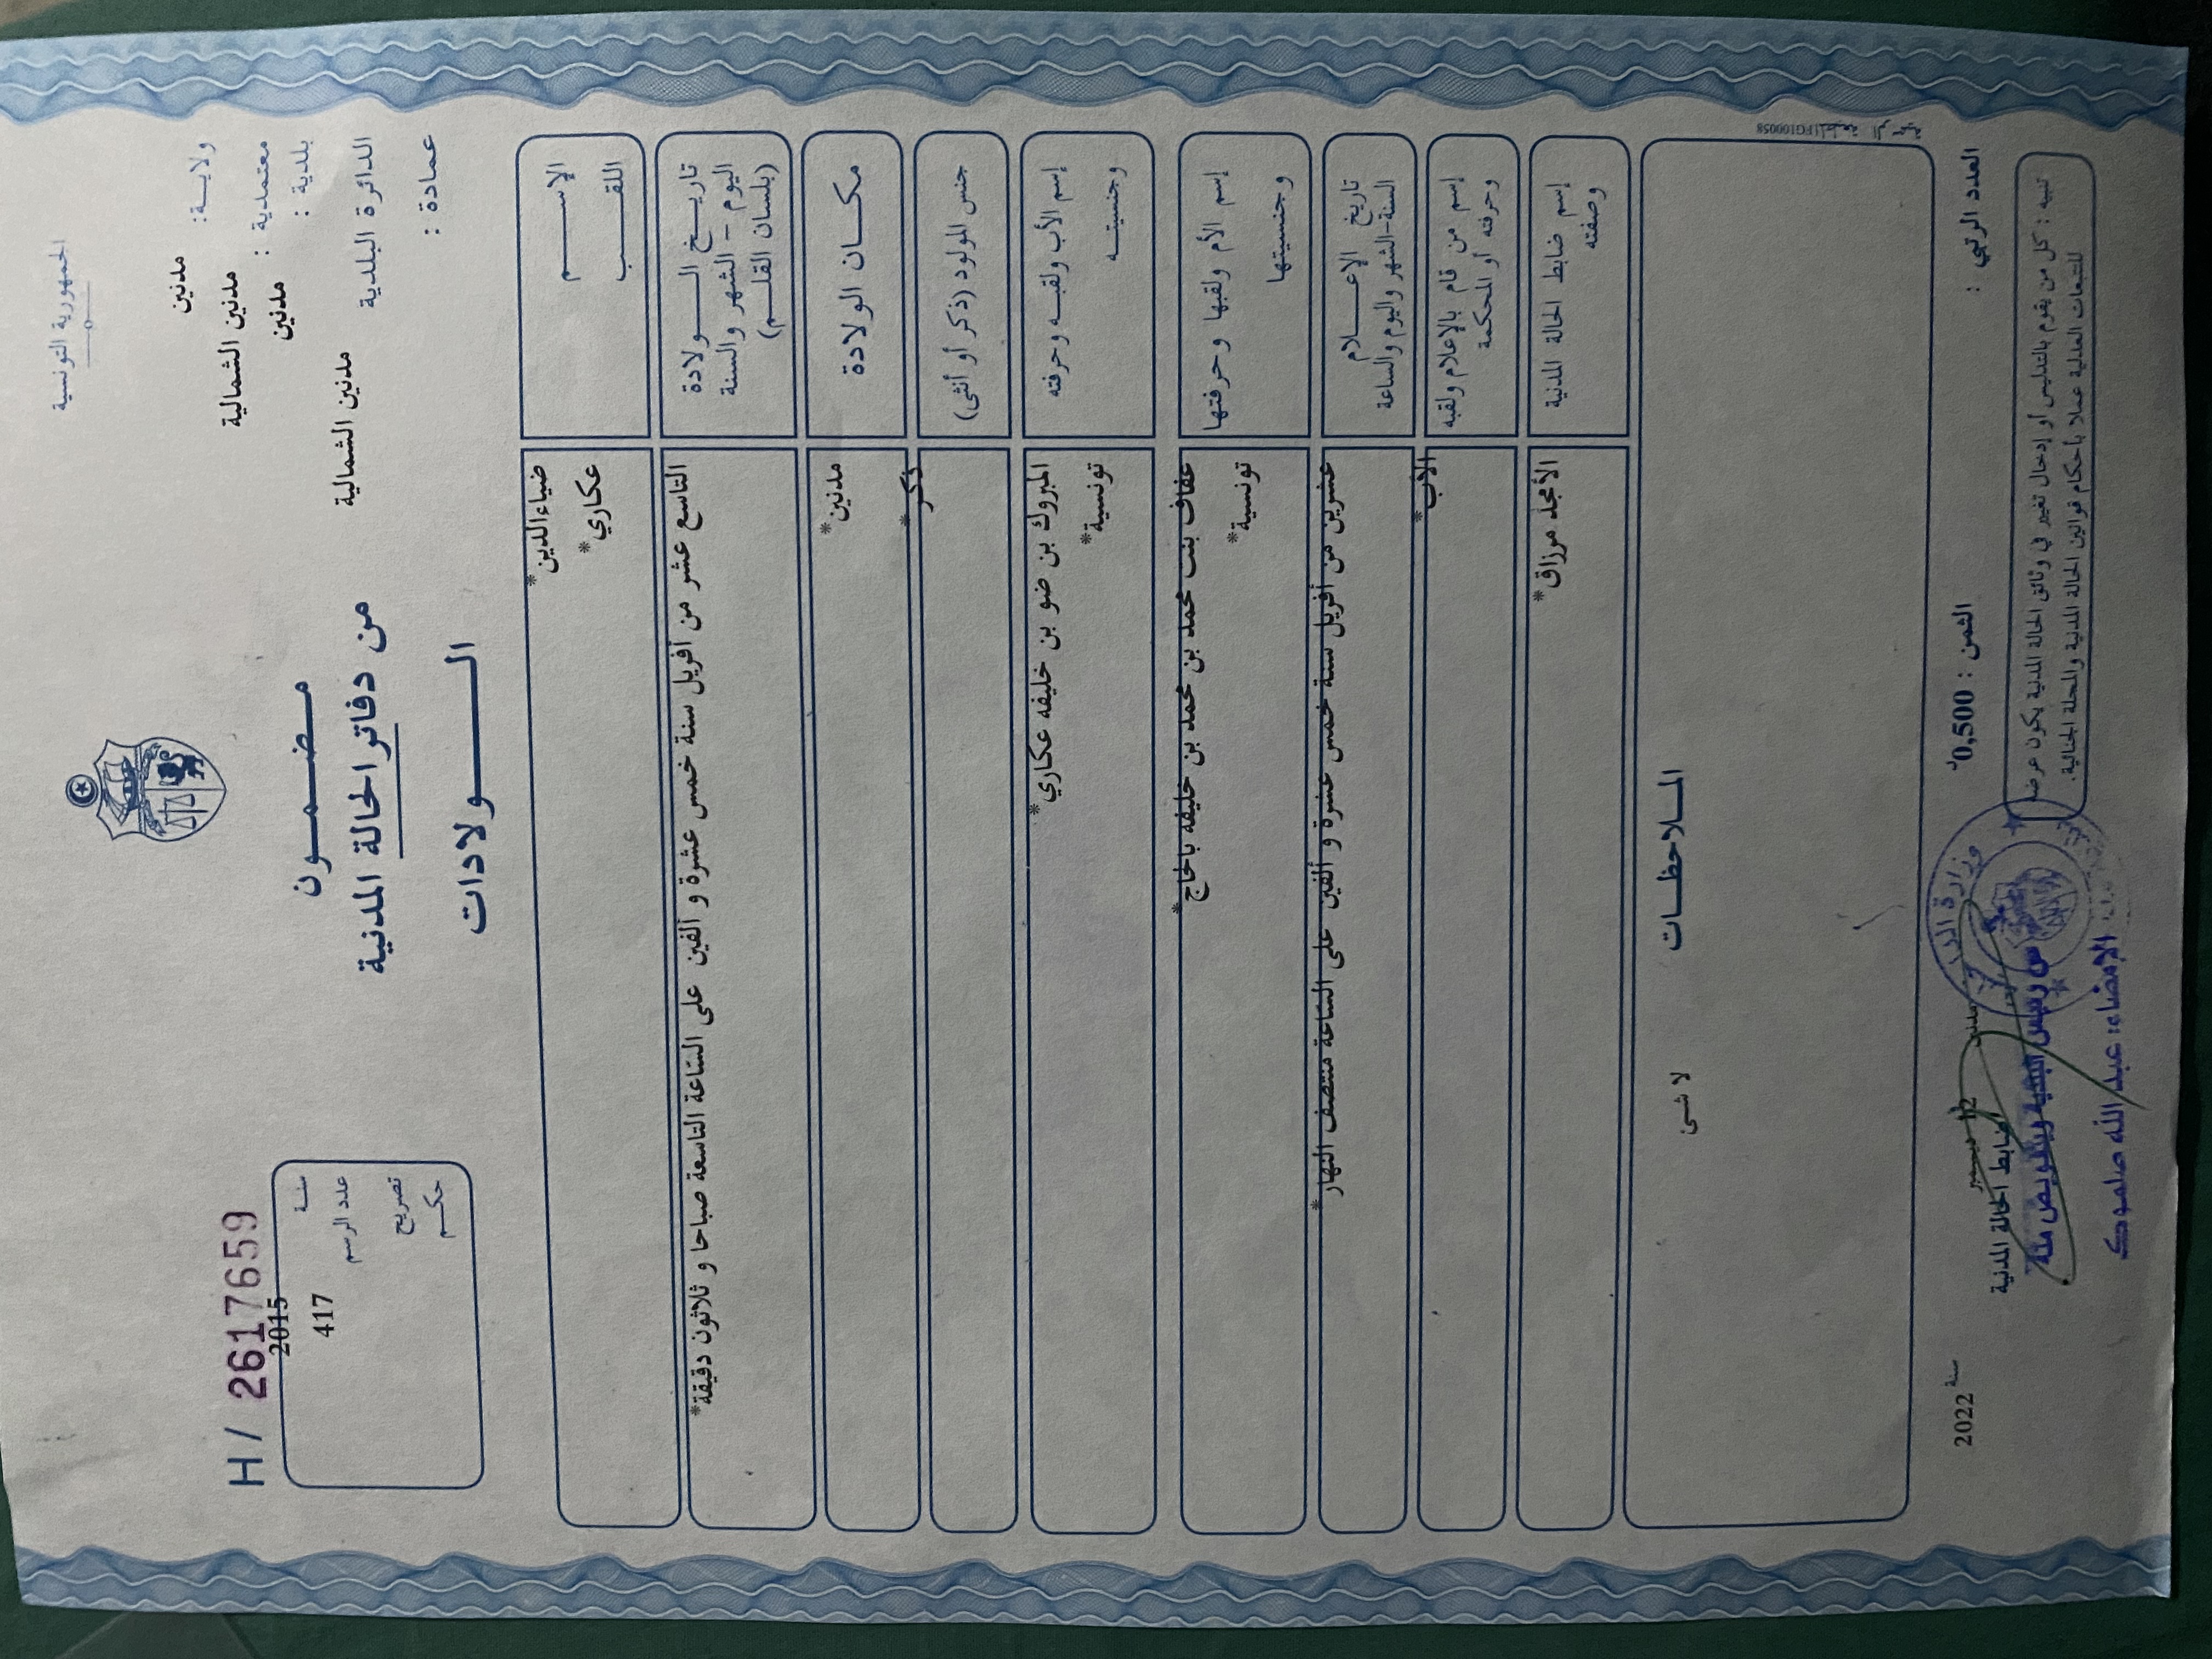 الجمهورية التونسية
ولاية: مدنين
معتمدية : مدنين الشمالية
بلدية : مدنين
الدائرة البلدية مدنين الشمالية
عمادة :
مضمون
من دفاتر الحالة المدنية
الولادات
H/ 2617659
سنة 2015
عدد الرسم 417
تصريح
حكم
الإسم ضياءالدين*
اللقب عكاري*
تاريخ الولادة التاسع عشر من أفريل سنة خمس عشرة و ألفين على الساعة التاسعة صباحا و ثلاثون دقيقة*
اليوم - الشهر والسنة
(بلسان القلم)
مكان الولادة مدنين*
جنس المولود (ذكر أو أنثى) ذكر*
إسم الأب ولقبه وحرفته المبروك بن ضو بن خليفه عكاري*
وجنسيته تونسية*
إسم الأم ولقبها وحرفتها عفاف بنت محمد بن محمد بن خليفه بالحاج*
وجنسيتها تونسية*
تاريخ الإعلام عشرين من أفريل سنة خمس عشرة و ألفين على الساعة منتصف النهار*
السنة-الشهر واليوم والساعة
إسم من قام بالإعلام ولقبه الأب*
وحرفته أو المحكمة
إسم ضابط الحالة المدنية الأمجد مرزاق*
وصفته
الملاحظات
لا شئ
العدد الرتبي :
الثمن : 0,500د
مدنين 12 ديسمبر سنة 2022
ضابط الحالة المدنية
تنبيه : كل من يقوم بالتدليس أو إدخال تغيير في وثائق الحالة المدنية يكون عرضة
للتتبعات العدلية عملا بأحكام قوانين الحالة المدنية والمجلة الجنائية.
عن رئيس البلدية وبتفويض منه
الإمضاء: عبد الله صلموك